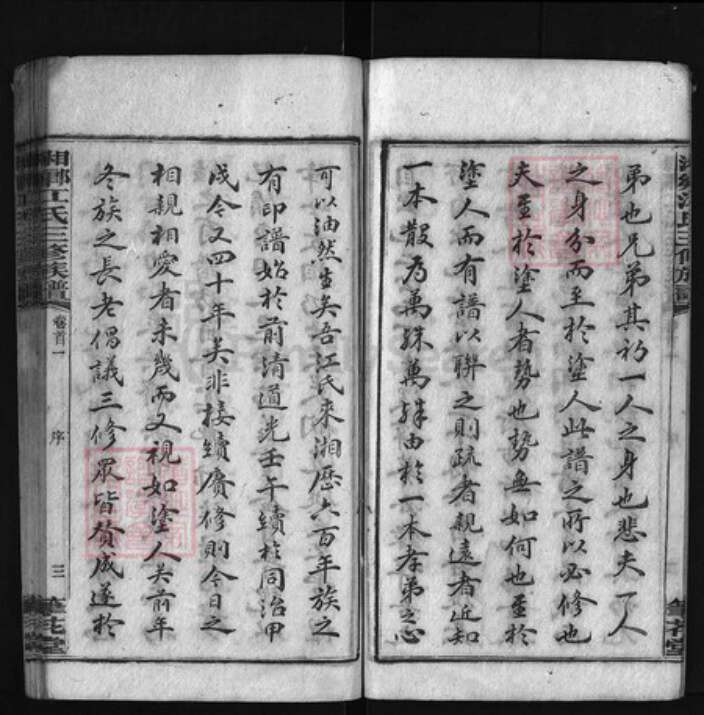 弟也兄弟其初一人之身也悲夫一人
之身分而至於塗人此譜之所以必修也
夫至於塗人者勢也勢無如何也至於
塗人而有譜以聯之則疏者親遠者近知
一本散為萬殊萬殊由於一本孝弟之心
可以油然生矣吾江氏來湘歷六百年族之
有印譜始於前清道光壬午續於同治甲
戌今又四十年矣非接續賡修則今日之
相親相愛者未幾而又視如塗人矣前年
冬族之長老倡議三修眾皆贊成遂於
湘鄉江氏三修族譜
卷首一
序
三
筆花堂